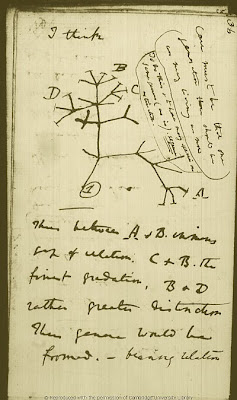 36
I think
Case must be that one
generation then should be
as many living as now
To do this & to have many species in
same genus (as is) requires
extinction
B
D
C
A
1
Thus between A & B immense
gap of relation. C & B. the
finest gradation, B & D
rather greater distinction
Thus genera would be
formed. — bearing relation
© Reproduced with the permission of Cambridge University Library